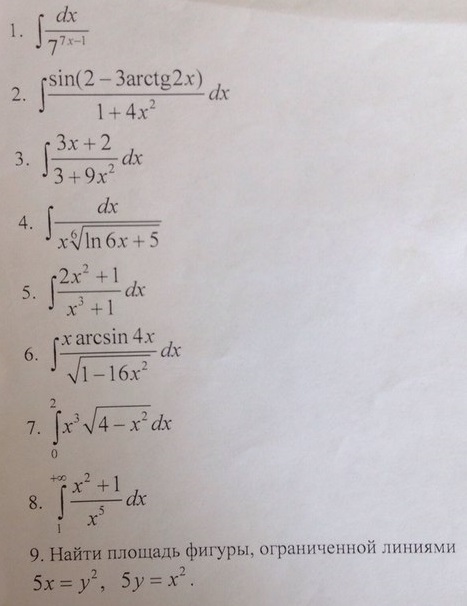 1. ∫ dx / 7^(7x−1)
2. ∫ sin(2 − 3arctg2x) / (1 + 4x²) dx
3. ∫ (3x + 2) / (3 + 9x²) dx
4. ∫ dx / (x ⁶√(ln 6x + 5))
5. ∫ (2x² + 1) / (x³ + 1) dx
6. ∫ x arcsin 4x / √(1 − 16x²) dx
7. ∫₀² x³ √(4 − x²) dx
8. ∫₁^(+∞) (x² + 1) / x⁵ dx
9. Найти площадь фигуры, ограниченной линиями
5x = y², 5y = x².